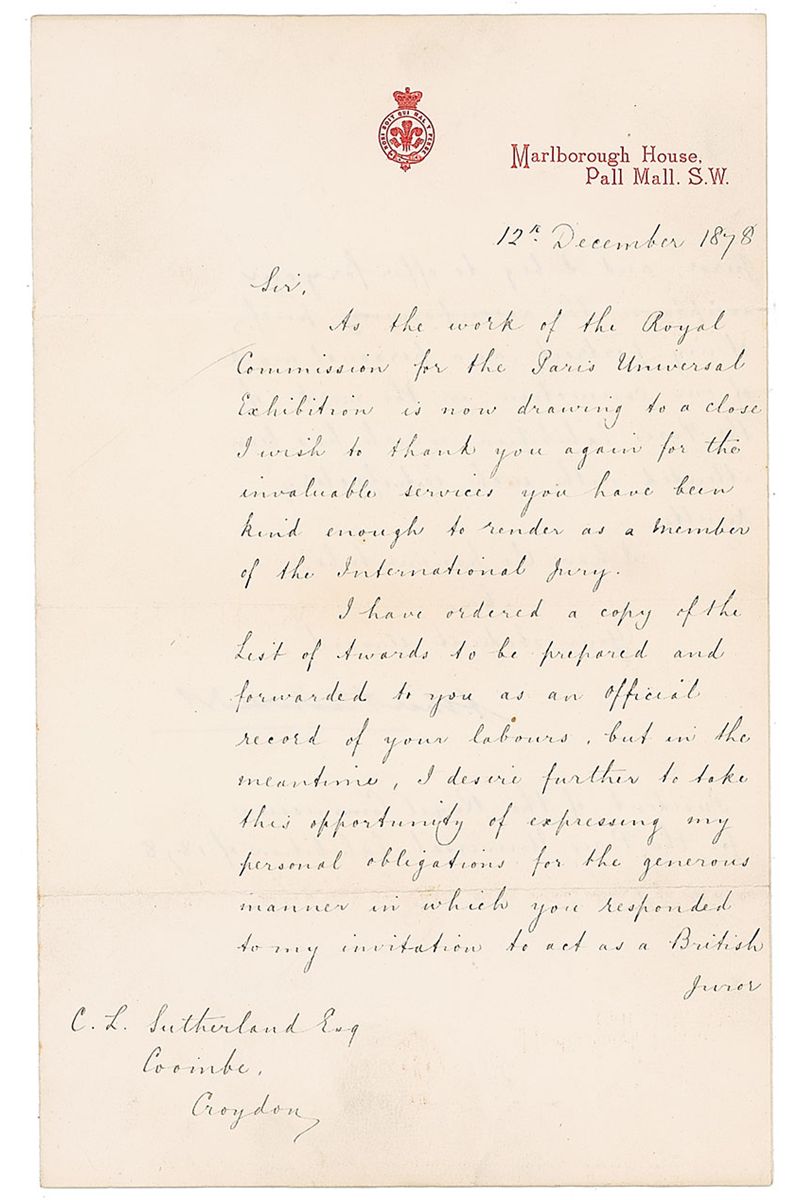 HONI SOIT QUI MAL Y PENSE
Marlborough House,
Pall Mall. S.W.
12th December 1878
Sir,
As the work of the Royal
Commission for the Paris Universal
Exhibition is now drawing to a close
I wish to thank you again for the
invaluable services you have been
kind enough to render as a Member
of the International Jury.
I have ordered a copy of the
List of Awards to be prepared and
forwarded to you as an official
record of your labours, but in the
meantime, I desire further to take
this opportunity of expressing my
personal obligations for the generous
manner in which you responded
to my invitation to act as a British
Juror
C. L. Sutherland Esq
Coombe,
Croydon